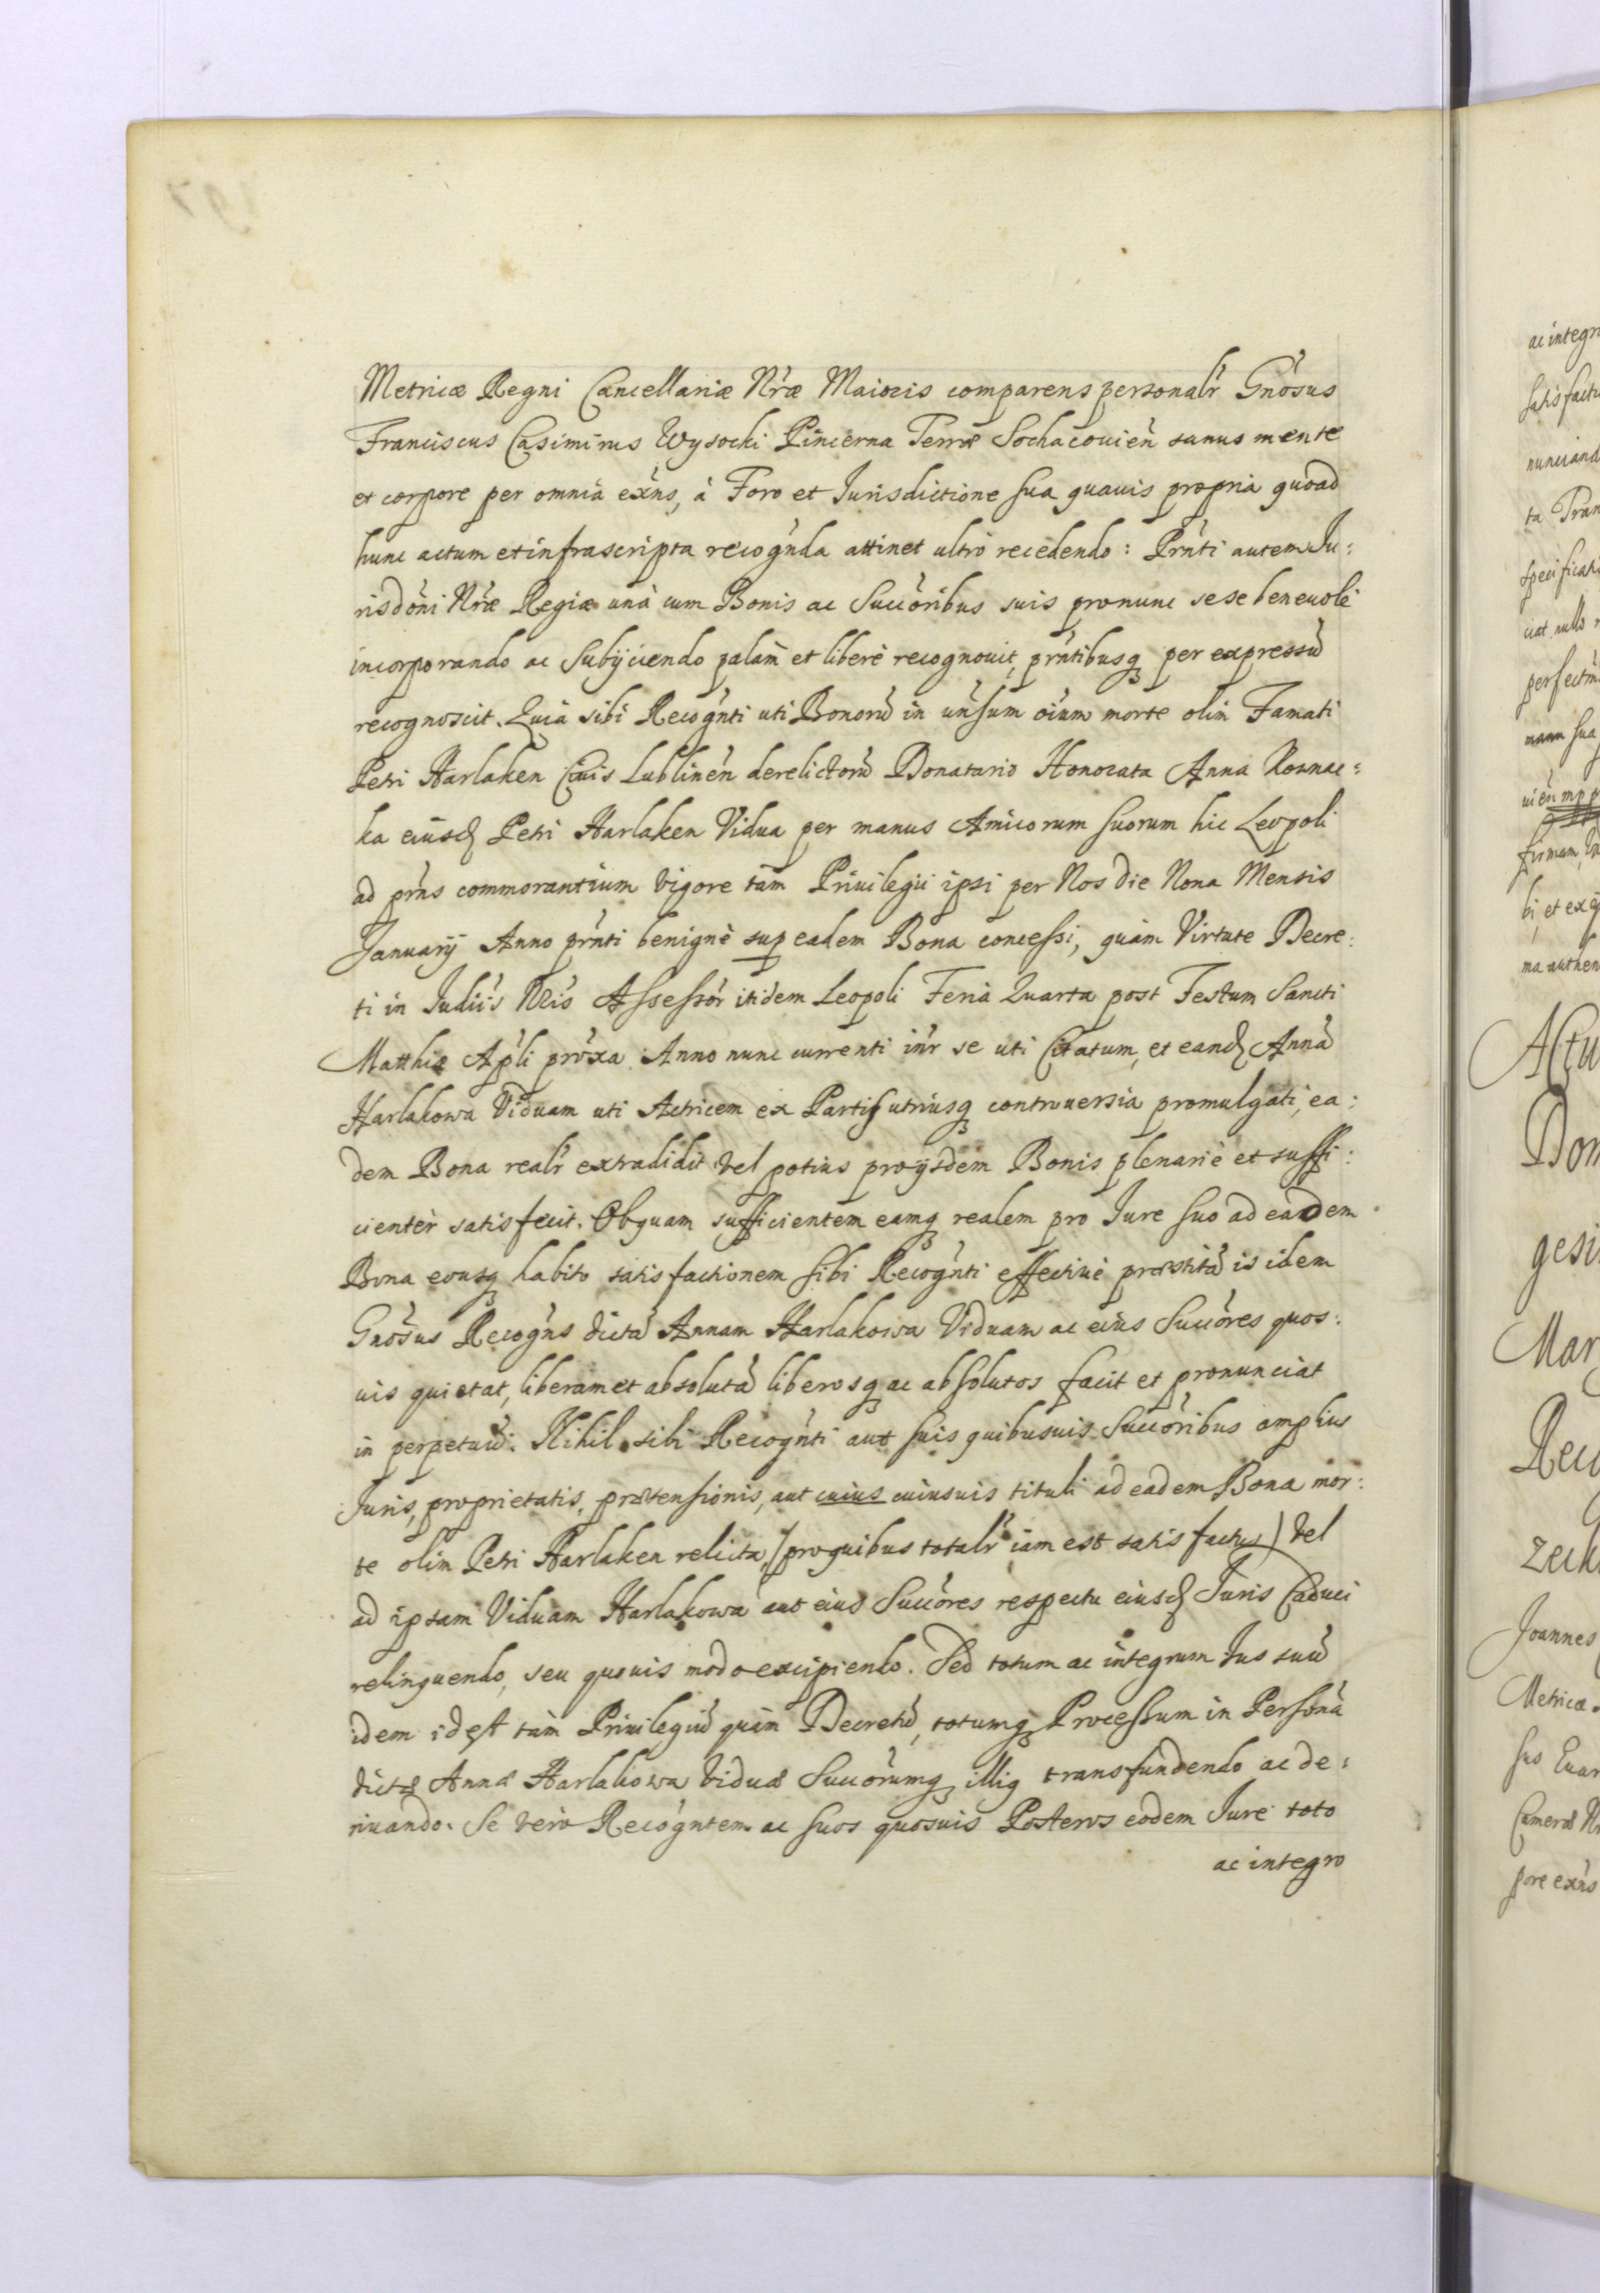 Metricæ Regni Cancellariæ Nr̃æ Maioris comparens personalr̃ Gnõsus
Franciscus Casimirus Wysocki Pincerna Terræ Sochacouieñ sanus mente
et corpore per omnia exñs, à Foro et Jurisdictione sua quauis propria quoad
hunc actum et infrascripta recogñda attinet ultrò recedendo: Prñti autem Ju:
risdõni Nr̃æ Regiæ unà cum Bonis ac Succõribus suis pronunc sese beneuolè
incorporando ac Subijciendo palam̃ et liberè recognouit, prñtibusq3 per expressũ
recognoscit. Quia sibi Recogñti uti Bonorũ in uñsum oĩum morte olim Famati
Petri Harlaken Ciuis Lublineñ derelictorũ Donatario Honorata Anna
ka eiusd Petri Harlaken Vidua per manus Amicorum suorum hic Leopoli
ad prñs commorantium vigore tam Priuilegii ipsi per Nos die Nona Mensis
Januarij Anno prñti benignè sup eadem Bona concessi, quàm Virtute Decre:
ti in Judiĩs Nr̃is Assessor̃ itidem Leopoli Feria Quarta post Festum Sancti
Matthiæ Apl̃i prõxa Anno nunc currenti inr̃ se uti Citatum, et eand Annã
Harlakowa Viduam uti Actricem ex Partis utriusq3 controuersia promulgati, ea:
dem Bona realr̃ extradidit vel potius pro ijsdem Bonis plenariè et suffi:
cientèr satisfecit. Ob quam sufficientem eamq3 realem pro Jure suo ad eadem
Bona eousq3 habito satisfactionem sibi Recogñti effectiuè præstitã is idem
Gnõsus Recogñs dictã Annam Harlakowa Viduam ac eius Succõres quos:
uis quietat, liberam et absolutã liberosq3 ac absolutos facit et pronunciat
in perpetuũ. Nihil sibi Recogñti aut suis quibusuis Succõribus amplius
Juris, proprietatis, prætensionis, aut cuius cuiusuis tituli ad eadem Bona mor:
te olim Petri Harlaken relicta, (pro quibus totalr̃ iam est satisfactus) vel
ad ipsam Viduam Harlakowa aut eius Succõres respectu eiusd Juris Caduci
relinquendo, seu quouis modo excipiendo. Sed totum ac integrum Jus suũ
idem id est tàm Priuilegiũ quàm Decretũ, totumq3 Processum in Personã
dictæ Annæ Harlakowa Viduæ Succõrumq3 illig transfundendo ac de:
riuando. Se verò Recogñtem ac suos quosuis Posteros eodem Jure toto
ac integro